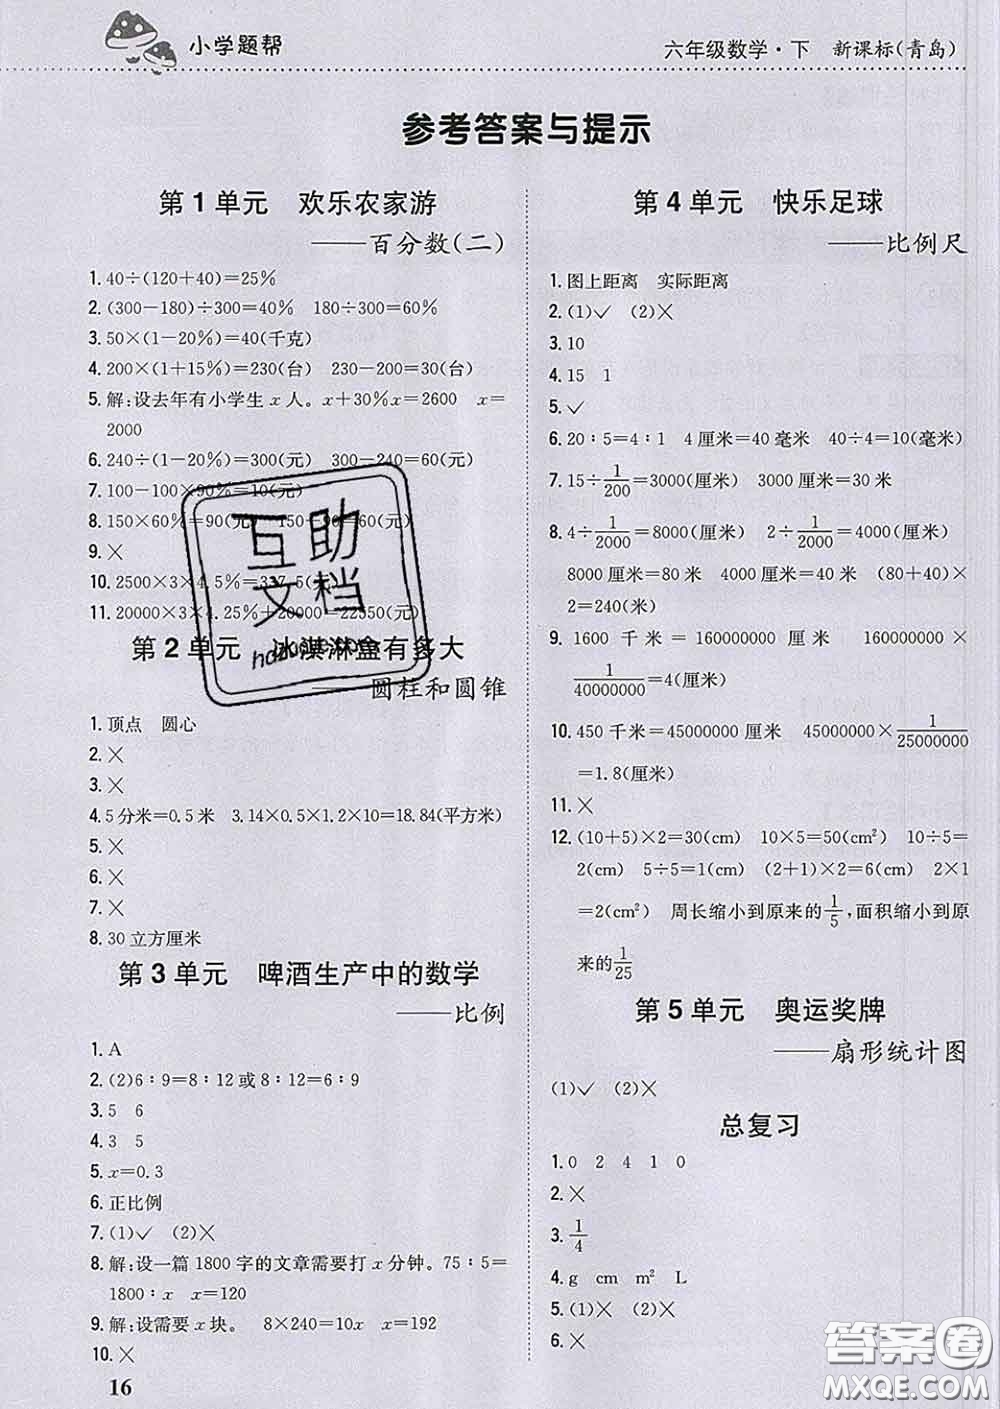 小学题帮
六年级数学·下 新课标(青岛)
参考答案与提示
第1单元 欢乐农家游
——百分数(二)
1. 40÷(120+40)=25%
2. (300-180)÷300=40% 180÷300=60%
3. 50×(1-20%)=40(千克)
4. 200×(1+15%)=230(台) 230-200=30(台)
5. 解:设去年有小学生x人。x+30%x=2600 x=
2000
6. 240÷(1-20%)=300(元) 300-240=60(元)
7. 100-100×90%=10(元)
8. 150×60%=90(元) 150-90=60(元)
9. ×
10. 2500×3×4.5%=337.5(元)
11. 20000×3×4.25%+20000=22550(元)
第2单元 冰淇淋盒有多大
——圆柱和圆锥
1. 顶点 圆心
2. ×
3. ×
4. 5分米=0.5米 3.14×0.5×1.2×10=18.84(平方米)
5. ×
6. ×
7. ×
8. 30立方厘米
第3单元 啤酒生产中的数学
——比例
1. A
2. (2)6∶9=8∶12或8∶12=6∶9
3. 5 6
4. 3 5
5. x=0.3
6. 正比例
7. (1)✓ (2)×
8. 解:设一篇1800字的文章需要打x分钟。75∶5=
1800∶x x=120
9. 解:设需要x块。 8×240=10x x=192
10. ×
16
第4单元 快乐足球
——比例尺
1. 图上距离 实际距离
2. (1)✓ (2)×
3. 10
4. 15 1
5. ✓
6. 20∶5=4∶1 4厘米=40毫米 40÷4=10(毫米)
7. 15÷1/200=3000(厘米) 3000厘米=30米
8. 4÷1/2000=8000(厘米) 2÷1/2000=4000(厘米)
8000厘米=80米 4000厘米=40米 (80+40)×
2=240(米)
9. 1600千米=160000000厘米 160000000×
1/40000000=4(厘米)
10. 450千米=45000000厘米 45000000×1/25000000
=1.8(厘米)
11. ×
12. (10+5)×2=30(cm) 10×5=50(cm²) 10÷5=
2(cm) 5÷5=1(cm) (2+1)×2=6(cm) 2×1
=2(cm²) 周长缩小到原来的1/5,面积缩小到原
来的1/25
第5单元 奥运奖牌
——扇形统计图
(1)✓ (2)×
总复习
1. 0 2 4 1 0
2. ×
3. 1/4
4. g cm m² L
5. (1)× (2)×
6. ×
互助
文档
答案圈
MXQE.COM